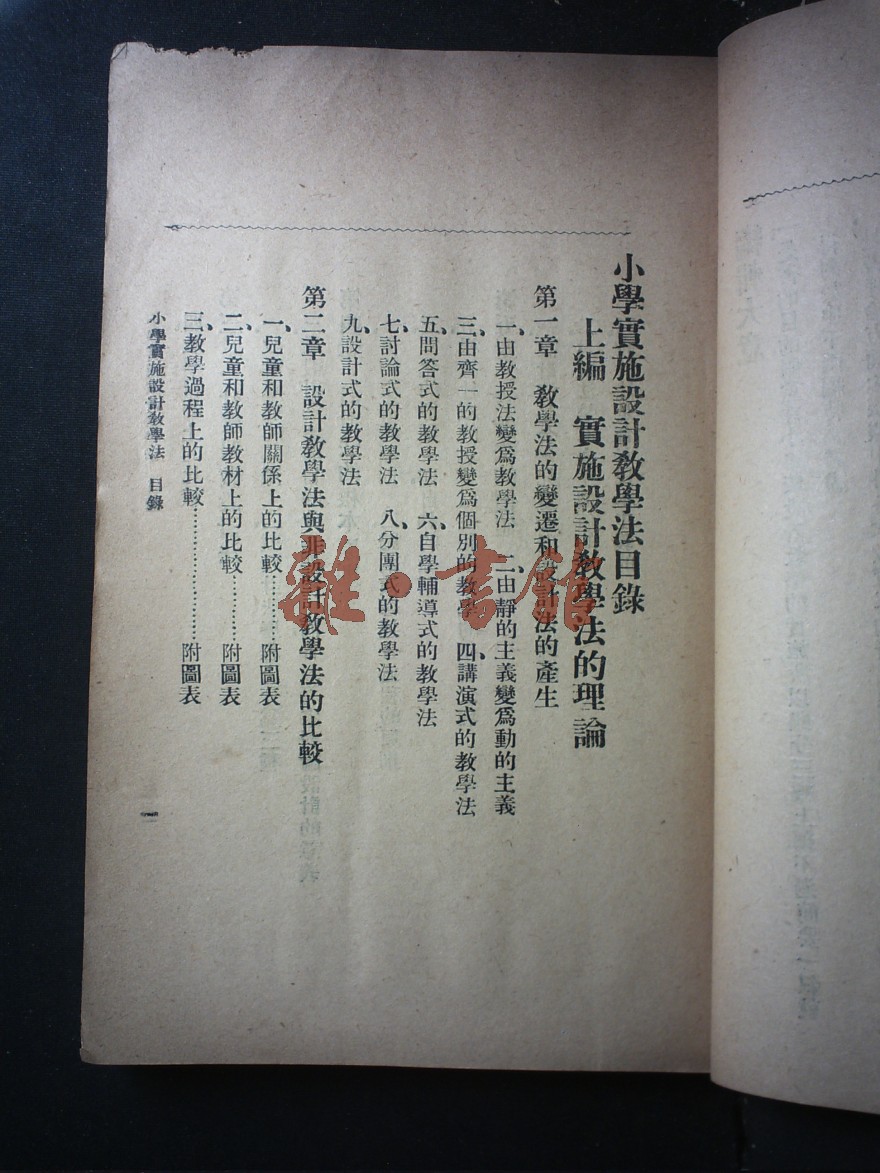 小學實施設計教學法目錄
上編　實施設計教學法的理論
第一章　教學法的變遷和設計法的產生
一、由教授法變爲教學法　二、由靜的主義變爲動的主義
三、由齊一的教授變爲個別的教學　四、講演式的教學法
五、問答式的教學法　六、自學輔導式的教學法
七、討論式的教學法　八、分團式的教學法
九、設計式的教學法
第二章　設計教學法與非設計教學法的比較
一、兒童和教師關係上的比較…………附圖表
二、兒童和教師教材上的比較…………附圖表
三、教學過程上的比較……………………附圖表
小學實施設計教學法　目錄
一
雜·書館